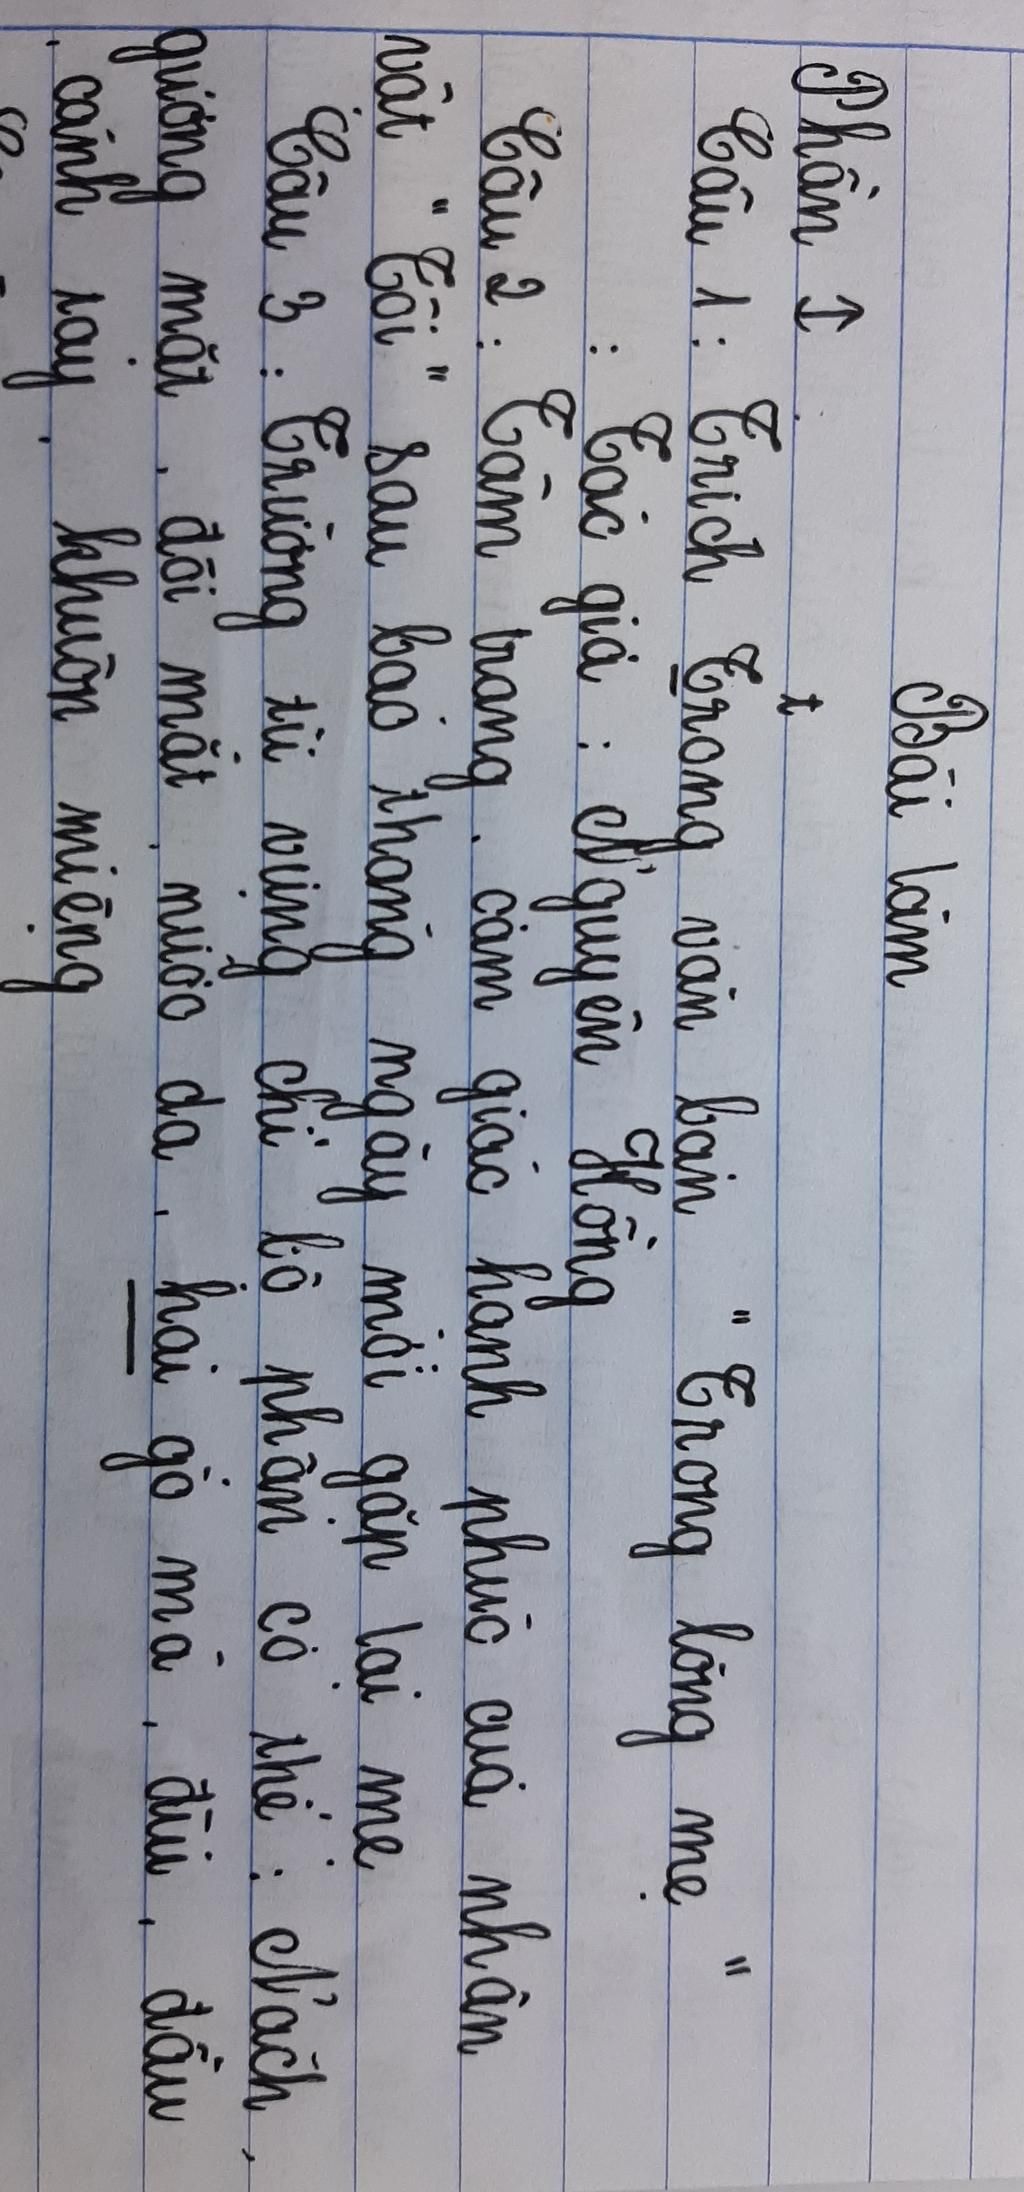 Bài làm
Phần I
Câu 1: Trích trong văn bản " Trong lòng mẹ "
: Tác giả : Nguyên Hồng
Câu 2 : Tâm trạng, cảm giác hạnh phúc của nhân
vật " Tôi " sau bao tháng ngày mới gặp lại mẹ
Câu 3 : Trường từ vựng chỉ bộ phận cơ thể : Nách,
gương mặt, đôi mắt, nước da, hai gò má, đùi, đầu
, cánh tay, khuôn miệng